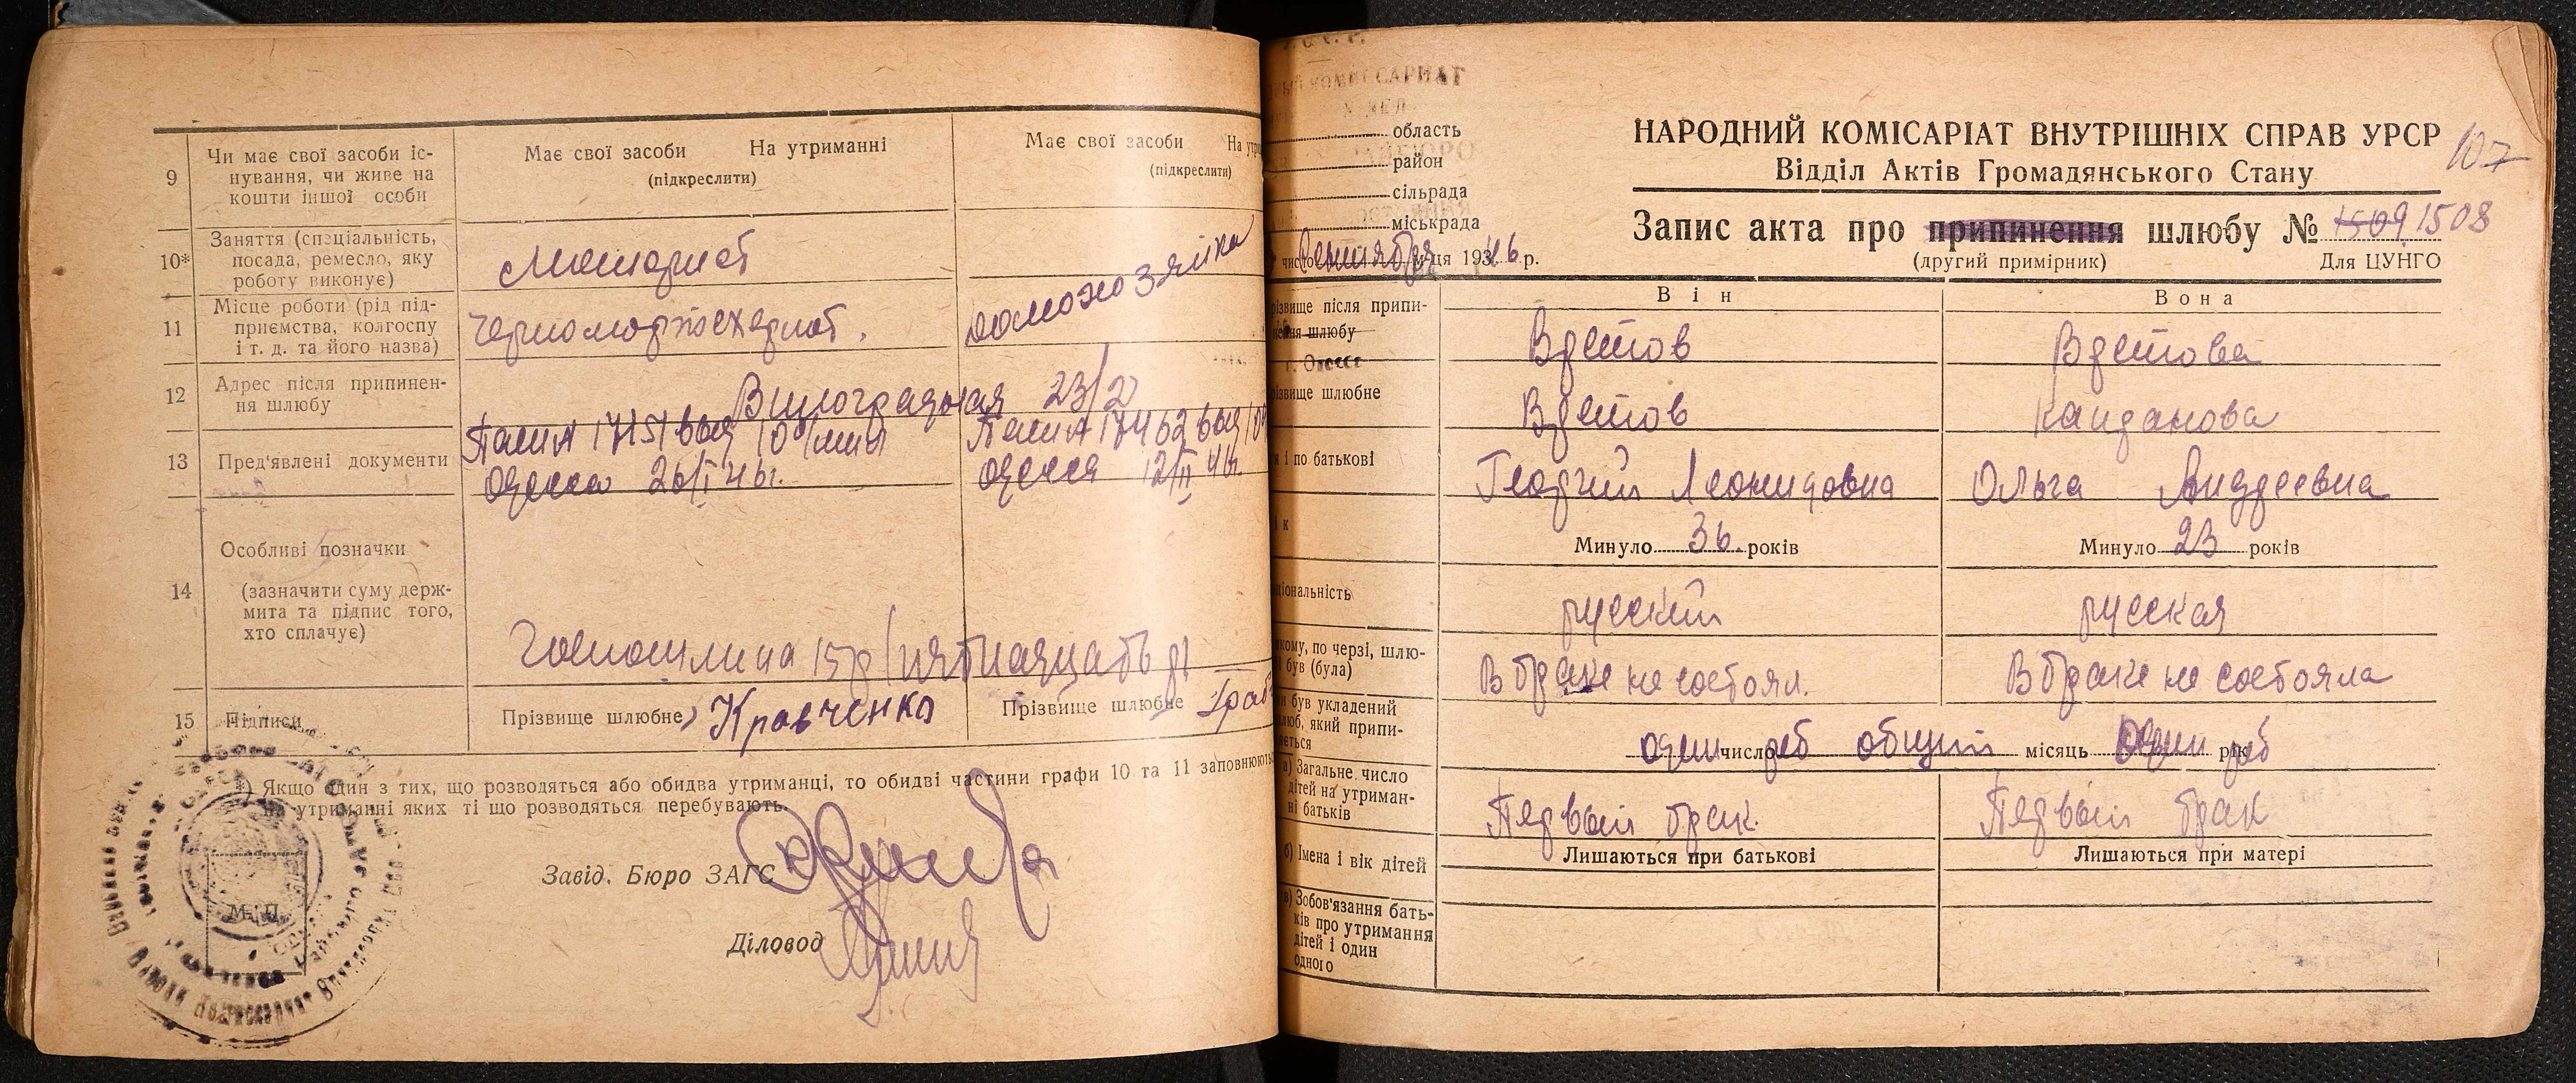 9
Чи має свої засоби іс-
нування, чи живе на
кошти іншої особи
Має свої засоби На утриманні
(підкреслити)
Має свої засоби На утр
(підкреслити)
10*
Заняття (спеціальність,
посада, ремесло, яку
роботу виконує)
домохозяйка
11
Місце роботи (рід під-
приємства, колгоспу
і т. д. та його назва)
12
Адрес після припинен-
ня шлюбу
Виноградная 23/2
13
Пред'явлені документи
Одесса 26/I 46г.
Одесса 12/II 46г.
14
Особливі позначки
(зазначити суму держ-
мита та підпис того,
хто сплачує)
Госпошлина 15р/пятнадцать р/
15
Підписи
Прізвище шлюбне Кравченко
Прізвище шлюбне Граб
*) Якщо один з тих, що розводяться або обидва утриманці, то обидві частини графи 10 та 11 заповнюють
на утриманні яких ті що розводяться перебувають.
М. П.
Завід. Бюро ЗАГС
Діловод
область
район
сільрада
міськрада
число місяця 1946 р.
НАРОДНИЙ КОМІСАРІАТ ВНУТРІШНІХ СПРАВ УРСР
107
Відділ Актів Громадянського Стану
Запис акта про припинення шлюбу № 1509 1508
(другий примірник)
Для ЦУНГО
Він
Вона
різвище після припи-
нення шлюбу
Вдетов
Вдетова
г. Одесса
різвище шлюбне
Вдетов
Кайданова
я і по батькові
Георгий Леонидовна
Ольга Андреевна
ік
Минуло 36 років
Минуло 23 років
ціональність
русский
русская
якому, по черзі, шлю-
бі був (була)
В браке не состоял.
В браке не состояла
ли був укладений
шлюб, який припи-
няється
один число реб общий місяць Один рік реб
а) Загальне число
дітей на утриман-
ні батьків
Первый брак.
Первый брак
б) Імена і вік дітей
Лишаються при батькові
Лишаються при матері
в) Зобов'язання бать-
ків про утримання
дітей і один
одного